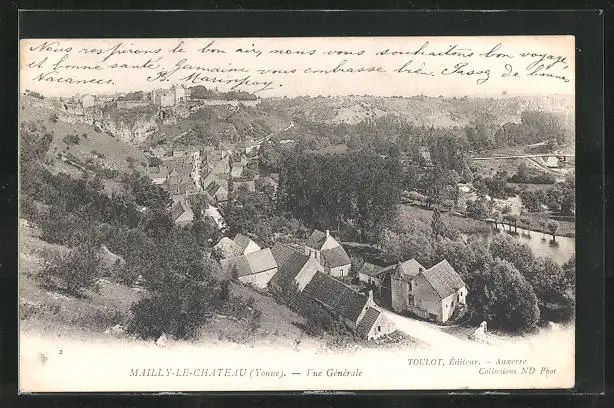 Nous respirons le bon air, nous vous souhaitons bon voyage
et bonne santé, Germaine vous embrasse bien. Passez de bonne
vacances. B.
2
MAILLY-LE-CHATEAU (Yonne). — Vue Générale
TOULOT, Éditeur. - Auxerre
Collections ND Phot